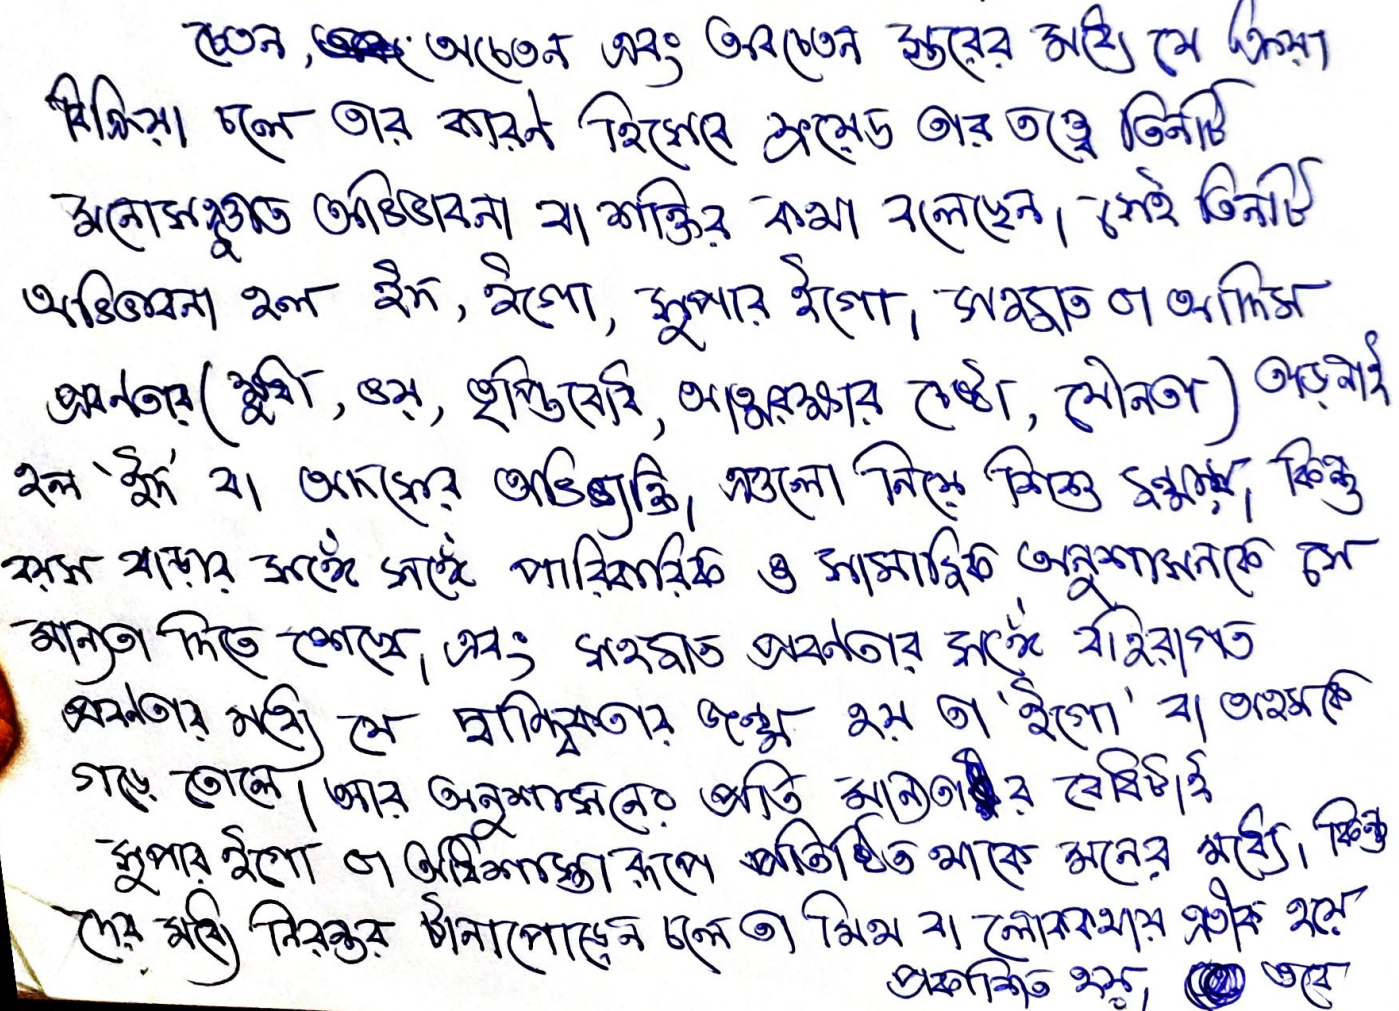 চেতন, অচেতন এবং অবচেতন স্তরের মধ্যে যে ক্রিয়া
বিক্রিয়া চলে তার কারণ হিসেবে ফ্রয়েড তার তত্ত্বে তিনটি
মনোসম্ভূত অভিভাবনা বা শক্তির কথা বলেছেন। সেই তিনটি
অভিভাবনা হল ইদ, ইগো, সুপার ইগো। সহজাত বা আদিম
প্রবণতার (ক্ষুধা, ভয়, তৃপ্তিবোধ, আত্মরক্ষার চেষ্টা, যৌনতা) তাড়নাই
হল 'ইদ' বা অদসের অভিব্যক্তি। এগুলো নিয়ে শিশু জন্মায়। কিন্তু
বয়স বাড়ার সঙ্গে সঙ্গে পারিবারিক ও সামাজিক অনুশাসনকে সে
মান্যতা দিতে শেখে। এবং সহজাত প্রবণতার সঙ্গে বহিরাগত
প্রবণতার মধ্যে যে দ্বান্দ্বিকতার জন্ম হয় তা 'ইগো' বা অহমকে
গড়ে তোলে। আর অনুশাসনের প্রতি মান্যতার বোধটাই
সুপার ইগো বা অধিশাস্তা রূপে প্রতিষ্ঠিত থাকে মনের মধ্যে। কিন্তু
দের মধ্যে নিরন্তর টানাপোড়েন চলে তা মিথ বা লোককথায় প্রতীক হয়ে
প্রকাশিত হয়। তবে